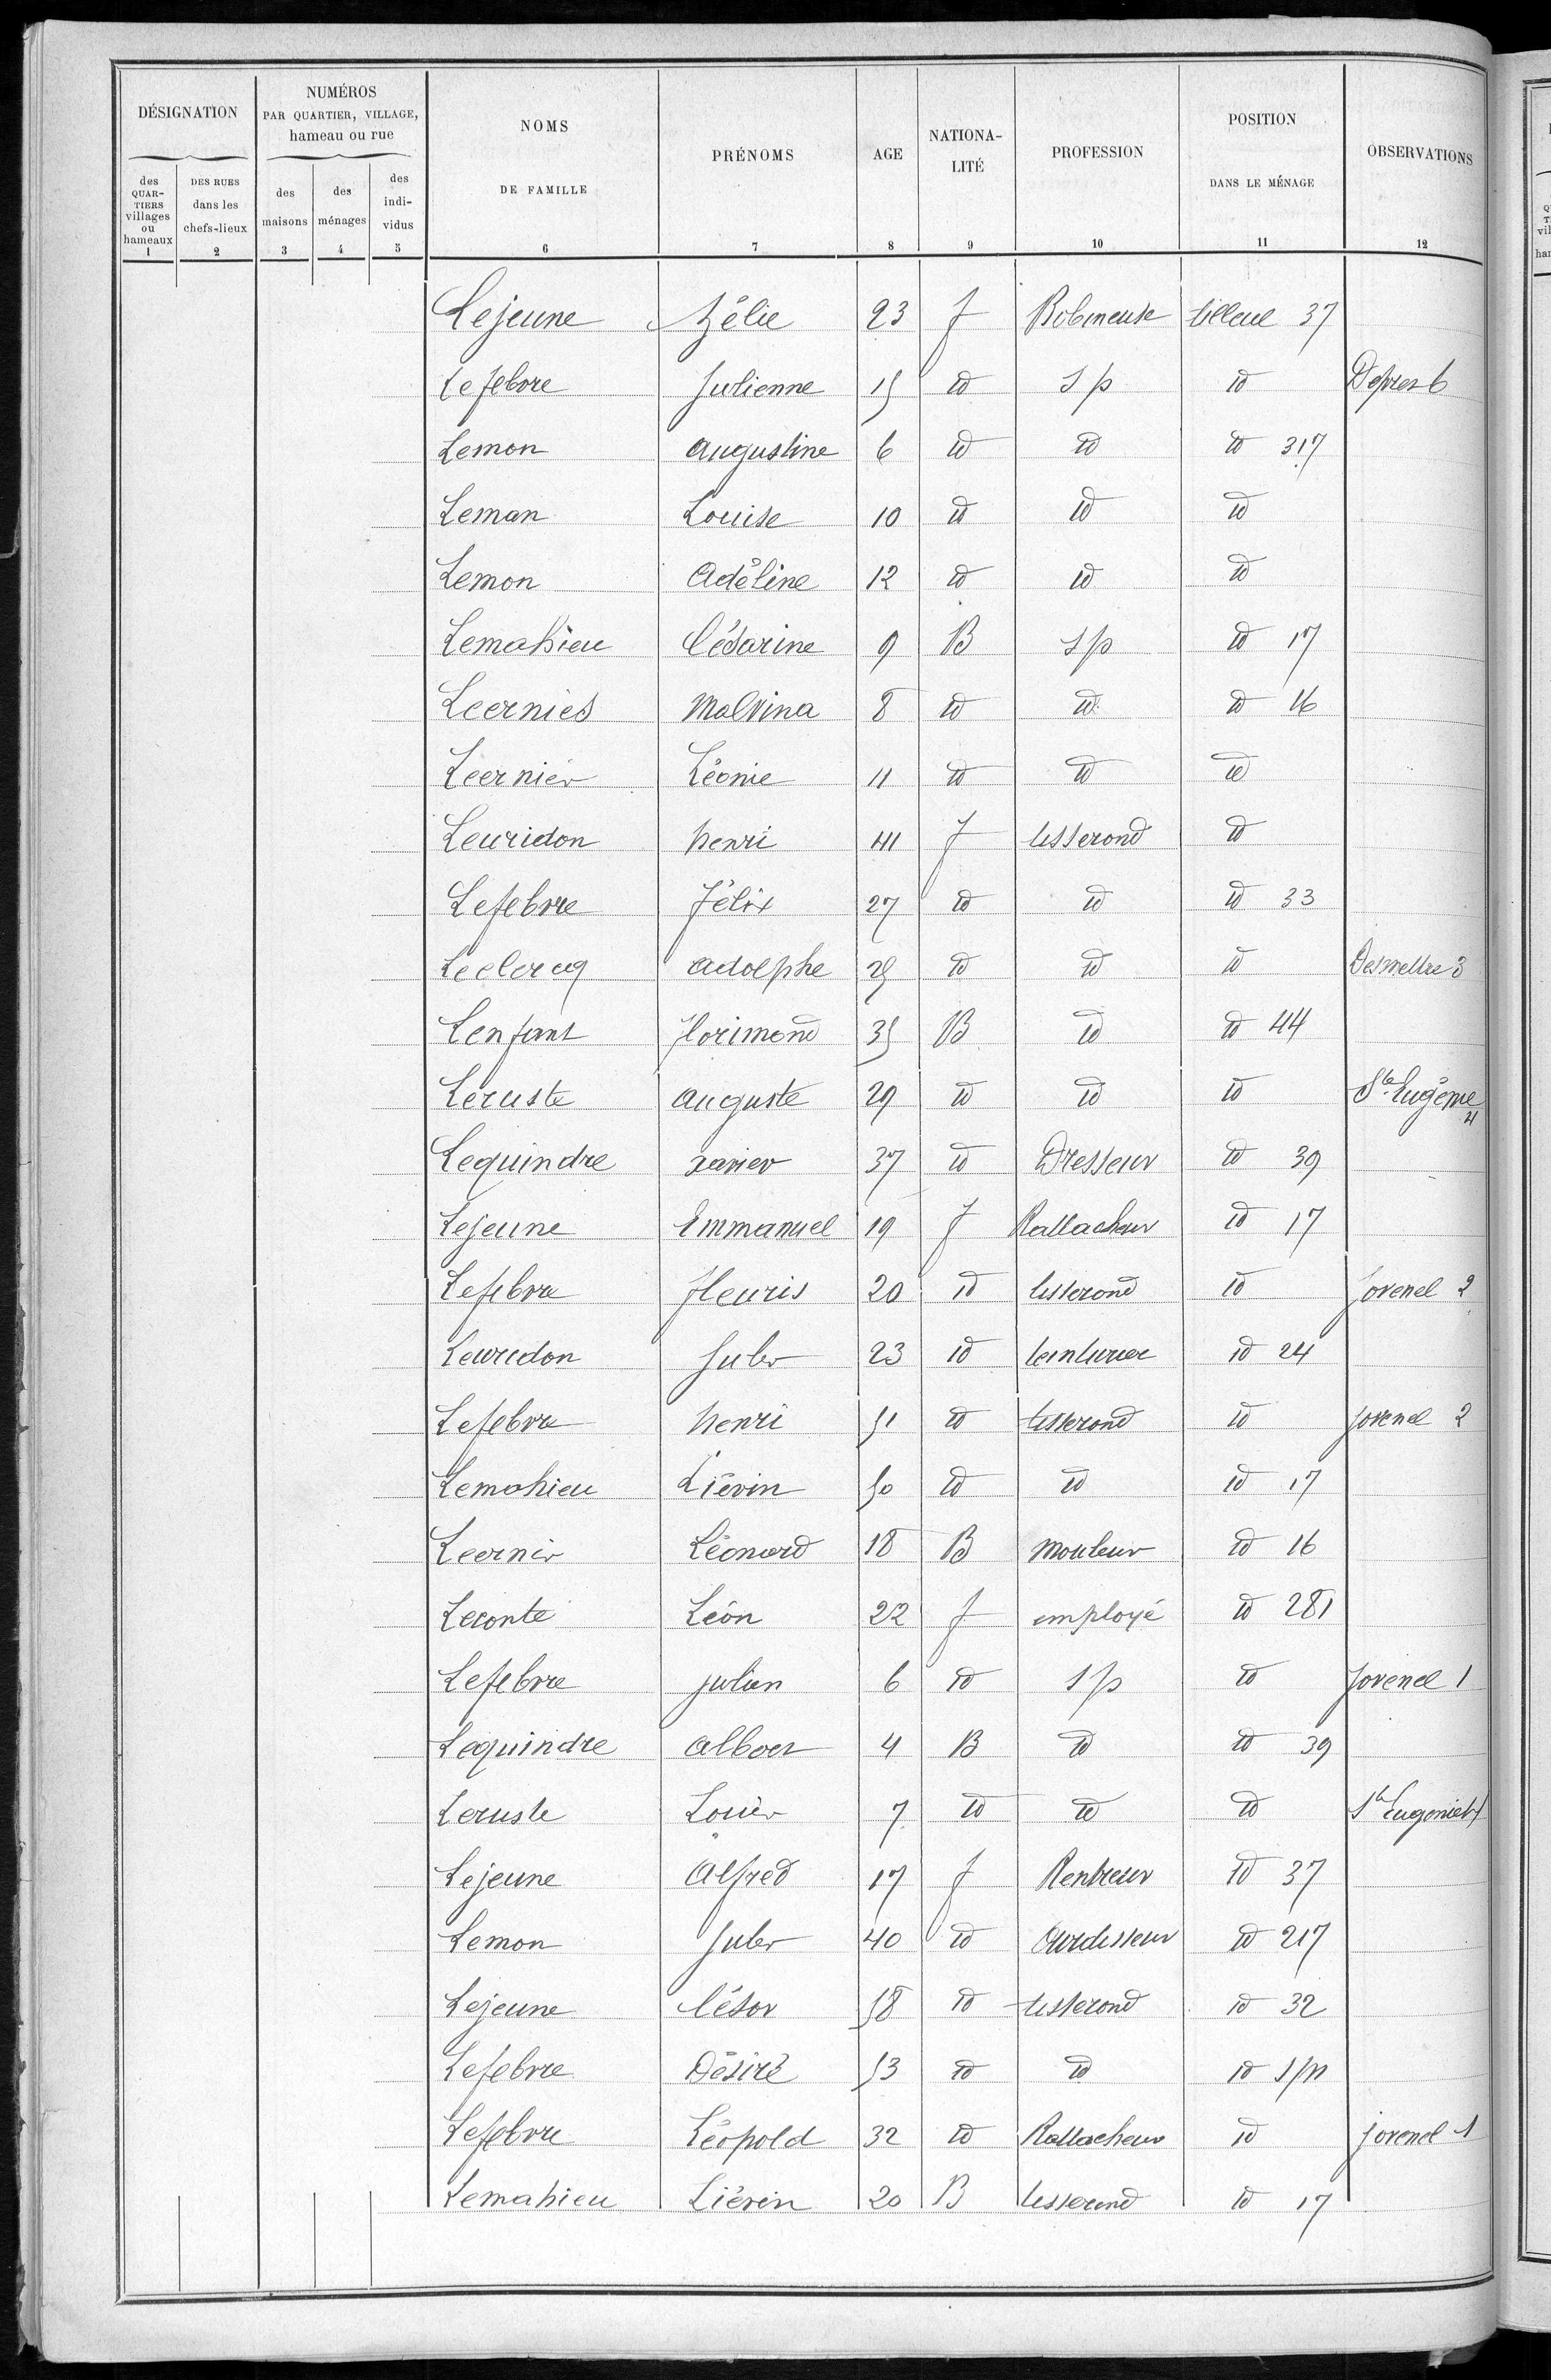 DÉSIGNATION
NUMÉROS
PAR QUARTIER, VILLAGE,
hameau ou rue
NOMS
DE FAMILLE
PRÉNOMS
AGE
NATIONA-
LITÉ
PROFESSION
POSITION
DANS LE MÉNAGE
OBSERVATIONS
des
QUAR-
TIERS
villages
ou
hameaux
DES RUES
dans les
chefs-lieux
des
maisons
des
ménages
des
indi-
vidus
1 2 3 4 5 6 7 8 9 10 11 12
Lejeune Zélie 23 f Bobineuse tilleul 37
Lefebvre Julienne 15 id s p id Desprez 6
Lemon Augustine 6 id id id 317
Leman Louise 10 id id id
Lemon Adéline 12 id id id
Lemahieu Césarine 9 B s p id 17
Leernies Malvina 8 id id id 16
Leernier Léonie 11 id id id
Leuridon henri 41 f tisserand id
Lefebvre Félix 27 id id id 33
Leclercq Adolphe 25 id id id Desmettre 3
Lenfant Florimond 35 B id id 44
Leruste Auguste 29 id id id Ste Eugénie 4
Lequindre xavier 37 id Dresseur id 39
Lejeune Emmanuel 19 f Rattacheur id 17
Lefebvre fleuris 20 id tisserand id jovenel 2
Leuridon Jules 23 id teinturier id 24
Lefebvre henri 51 id tisserand id jovenel 2
Lemahieu Liévin 50 id id id 17
Leernier Léonard 18 B mouleur id 16
Leconte Léon 22 f employé id 281
Lefebvre julien 6 id s p id jovenel 1
Lequindre Albert 4 B id id 39
Leruste Louis 7 id id id Ste Eugénie 4
Lejeune Alfred 17 f Rentreur id 37
Lemon Jules 40 id Ourdisseur id 217
Lejeune César 58 id tisserand id 32
Lefebvre Désiré 53 id id id s/n
Lefebvre Léopold 32 id Rattacheur id jovenel 1
Lemahieu Liévin 20 B tisserand id 17